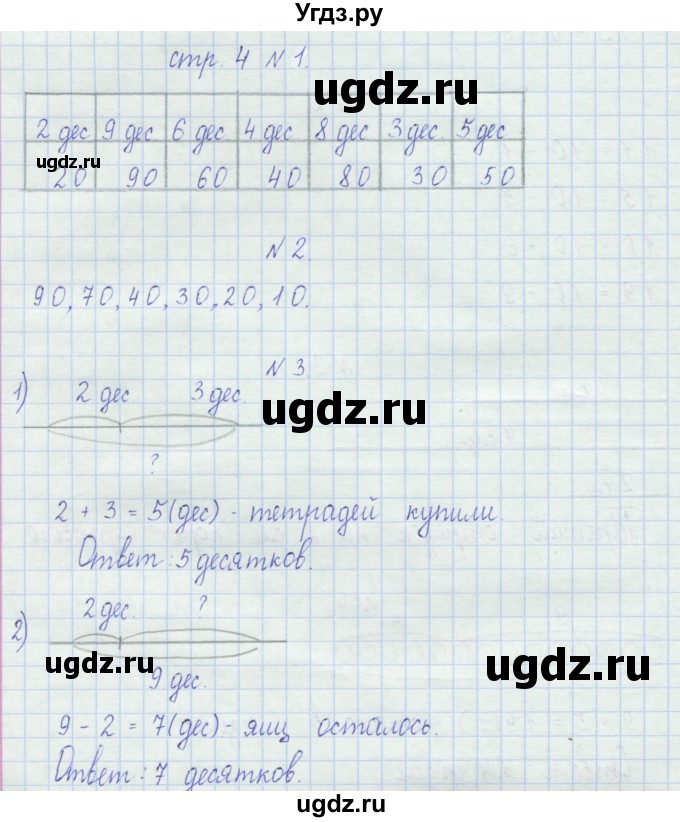 Угдз.ру
стр. 4 N 1.
ugdz.ru
2 дес 9 дес 6 дес 4 дес 8 дес 3 дес. 5 дес
ugdz.ru
20 90 60 40 80 30 50
N 2.
90, 70, 40, 30, 20, 10.
N 3
1) 2 дес 3 дес.
ugdz.ru
?
2 + 3 = 5 (дес) - тетрадей купили.
Ответ: 5 десятков.
2) 2 дес. ?
ugdz.ru ugdz.ru
9 дес.
9 - 2 = 7 (дес) - яиц осталось.
Ответ: 7 десятков.
ugdz.ru